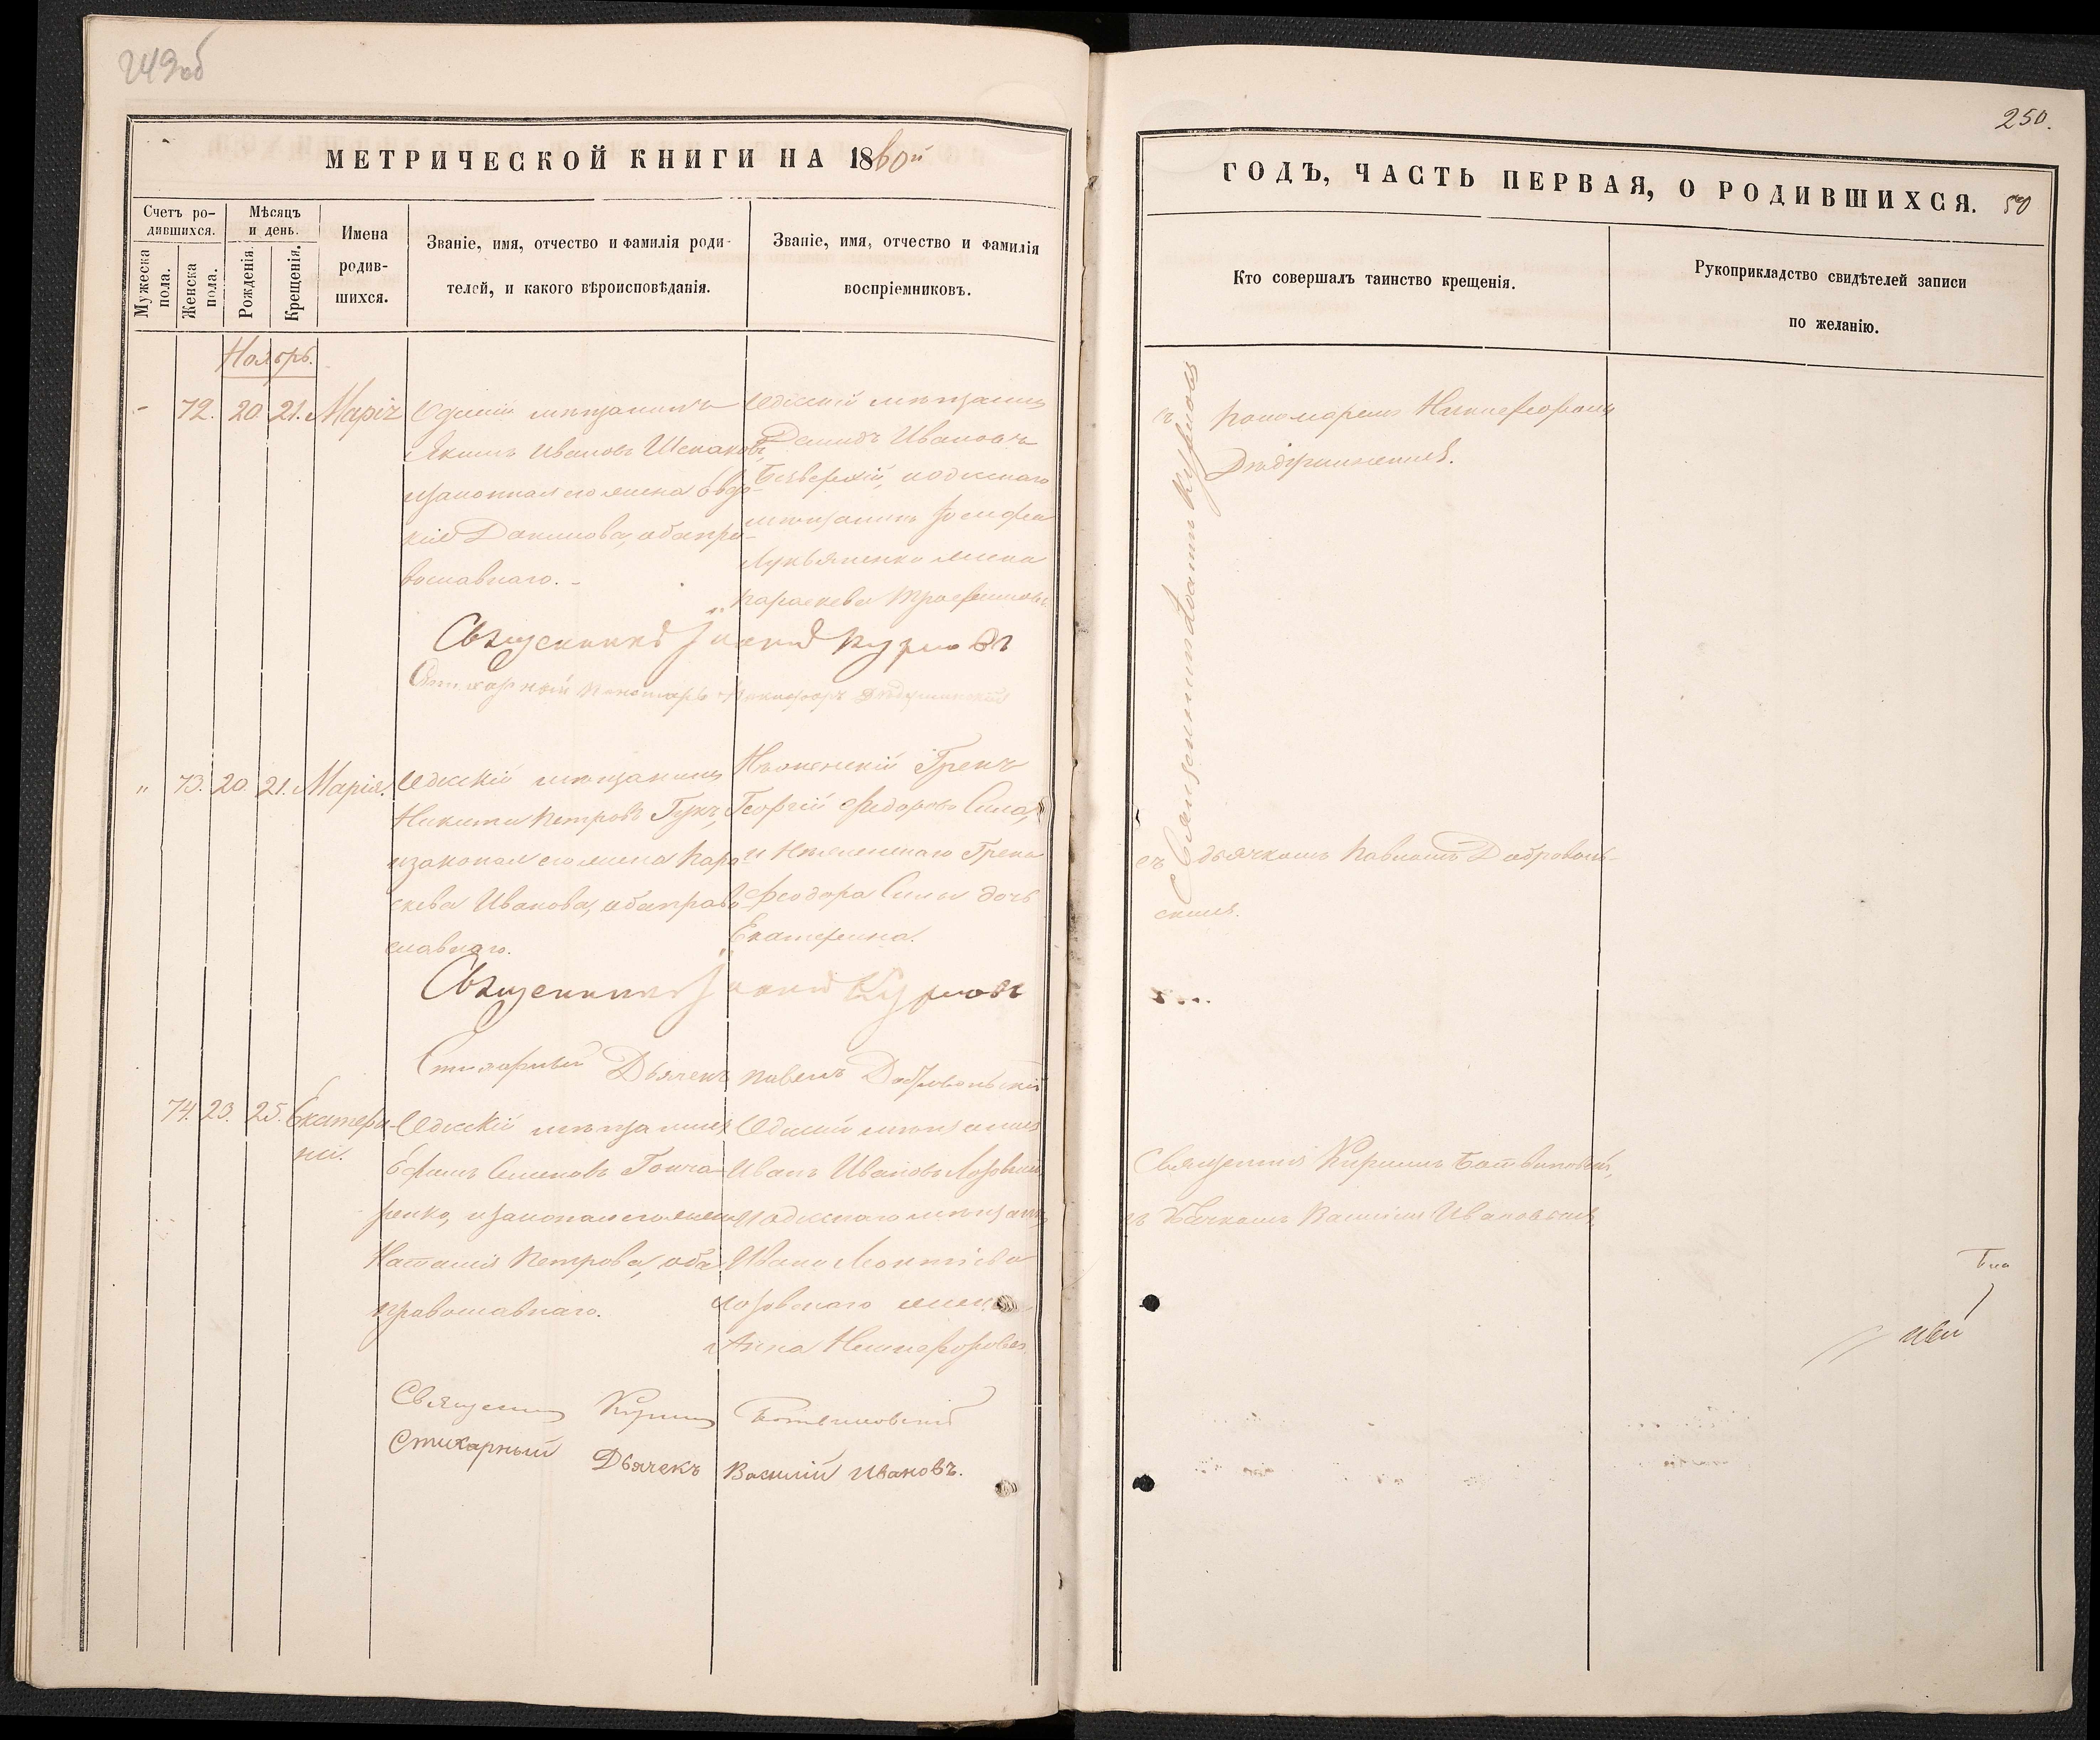 249об
МЕТРИЧЕСКОЙ КНИГИ НА 1860й
Счетъ ро-
дившихся.
Мужеска пола.
Женска пола.
Мѣсяцъ
и день.
Рожденія.
Крещенія.
Имена
родив-
шихся.
Званіе, имя, отчество и фамилія роди-
телей, и какого вѣроисповѣданія.
Званіе, имя, отчество и фамилія
воспріемниковъ.
Ноябрь.
72. 20. 21. Марія
Одескій мѣщанинъ
Якимъ Ивановъ
изаконная его жена Евдо-
кія Данилова, оба пра-
вославнаго.
Одескій мѣщанинъ
Демидъ Ивановъ
Безверхій, иодескаго
мѣщанина Іосифа
Лукьяненко жена
Параскева Трофимова.
Священникъ Іоаннъ Курловъ
Стихарный Пономарь Никифоръ
" 73. 20. 21. Марія.
Одескій мѣщанинъ
Никита Петровъ Гукъ,
изаконная его жена Пара-
скева Иванова, оба право-
славнаго.
Нѣженскій Грекъ
Георгій Федоровъ Сила,
и Нѣженскаго Грека
Феодора Силы дочь
Екатерина.
Священникъ Іоаннъ Курловъ
Стихарный Дьячекъ Павелъ Добровольскій
74. 23. 25. Екатери-
на.
Одескій мѣщанинъ
Ефимъ Семеновъ Гонча-
ренко, изаконная его жена
Наталія Петрова, оба
православнаго.
Одескій мѣщанинъ
Иванъ Ивановъ Лозовскій
иодескаго мѣщанина
Ивана Леонтіева
Лозовскаго жена
Анна Никифорова.
Священникъ Кирилъ Ботвиновскій
Стихарный Дьячекъ Василій Ивановъ.
250.
ГОДЪ, ЧАСТЬ ПЕРВАЯ, О РОДИВШИХСЯ. 50
Кто совершалъ таинство крещенія.
Рукоприкладство свидѣтелей записи
по желанію.
Священникъ Іоаннъ Курловъ
съ Пономаремъ Никифоромъ
съ дьячкомъ Павломъ Доброволь-
скимъ.
Священникъ Кирилъ Ботвиновскій,
съ Дьячкомъ Василіемъ Ивановымъ